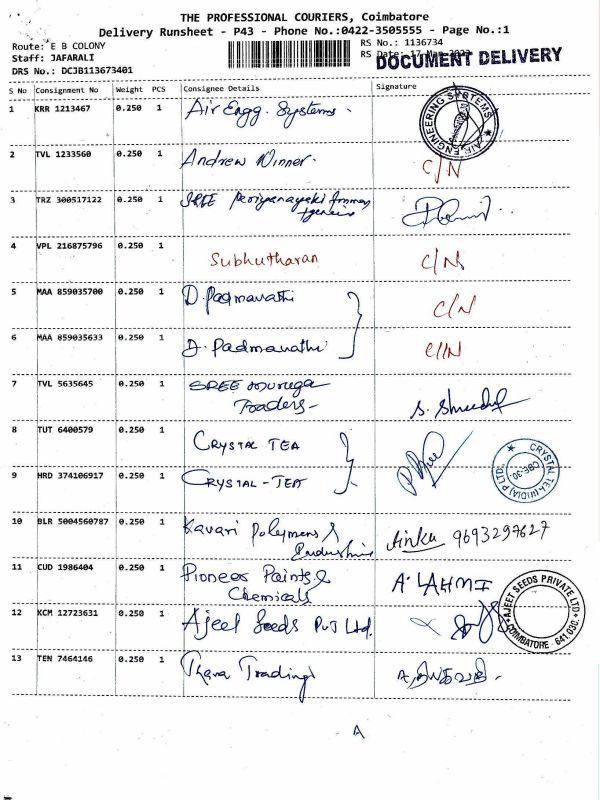 THE PROFESSIONAL COURIERS, Coimbatore
Delivery Runsheet - P43 - Phone No.:0422-3505555 - Page No.:1
Route: E B COLONY
RS No.: 1136734
Staff: JAFARALI
RS Date: 17-Mar-2023
DOCUMENT DELIVERY
DRS No.: DCJB113673401
S No Consignment No Weight PCS Consignee Details Signature
1 KRR 1213467 0.250 1 Air Engg. Systems.
AIR ENGINEERING SYSTEMS
2 TVL 1233560 0.250 1 Andrew Winner. C/N
3 TRZ 300517122 0.250 1 SREE Periyanayaki
4 VPL 216875796 0.250 1 Subhutharan C/N
5 MAA 859035700 0.250 1 D. Padmavathi C/N
6 MAA 859035633 0.250 1 D. Padmavathi C/N
7 TVL 5635645 0.250 1 SREE Muruga
Traders-
8 TUT 6400579 0.250 1 CRYSTAL TEA
CRYSTAL TEA (INDIA) P.LTD.
CBE-30
9 HRD 374106917 0.250 1 CRYSTAL-TEA
10 BLR 5004560787 0.250 1 Kavari Polymers & 9693297627
11 CUD 1986404 0.250 1 Pioneer Paints & A. LAHMI
Chemicals
12 KCM 12723631 0.250 1 Ajeet Seeds Pvt Ltd.
AJEET SEEDS PRIVATE LTD
COIMBATORE 641 030.
13 TEN 7464146 0.250 1 Thara Trading
A